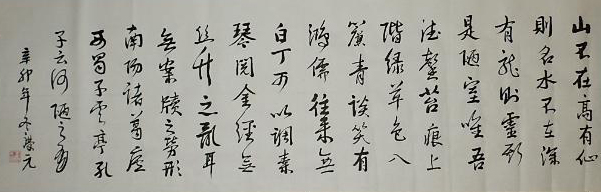 山不在高有仙
則名水不在深
有龍则靈斯
是陋室唯吾
德馨苔痕上
階緑草色入
簾青談笑有
鴻儒往來無
白丁可以調素
琴閲金經無
丝竹之亂耳
無案牘之勞形
南陽諸葛廬
西蜀子雲亭孔
子云何陋之有
辛卯年冬榮元